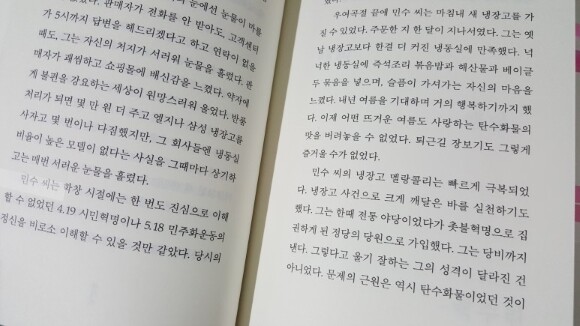 눈에선 눈물이 마를
가 5시까지 답변을 해드리겠다고 하고 연락이 없을
때도, 그는 자신의 처지가 서러워 눈물을 흘렸다. 판
매자가 괘씸하고 쇼핑몰에 배신감을 느꼈다. 약자에
게 불편을 강요하는 세상이 원망스러워 울었다. 반품
처리가 되면 몇 만 원 더 주고 엘지나 삼성 냉장고를
사자고 몇 번이나 다짐했지만, 그 회사들엔 냉동실
비율이 높은 모델이 없다는 사실을 그때마다 상기하
고는 매번 서러운 눈물을 흘렸다.
민수 씨는 학창 시절에는 한 번도 진심으로 이해
할 수 없었던 4.19 시민혁명이나 5.18 민주화운동의
정신을 비로소 이해할 수 있을 것만 같았다. 당시의
우여곡절 끝에 민수 씨는 마침내 새 냉장고를 가
질 수 있었다. 주문한 지 한 달이 지나서였다. 그는 옛
날 냉장고보다 한결 더 커진 냉동실에 만족했다. 넉
넉한 냉동실에 즉석조리 볶음밥과 해산물과 베이글
두 묶음을 넣으며, 슬픔이 가셔가는 자신의 마음을
느꼈다. 내년 여름을 기대하며 거의 행복하기까지 했
다. 이제 어떤 뜨거운 여름도 사랑하는 탄수화물의
맛을 버려놓을 수 없었다. 퇴근길 장보기도 그렇게
즐거울 수가 없었다.
민수 씨의 냉장고 멜랑콜리는 빠르게 극복되었
다. 냉장고 사건으로 크게 깨달은 바를 실천하기도
했다. 그는 한때 전통 야당이었다가 촛불혁명으로 집
권하게 된 정당의 당원으로 가입했다. 그는 당비까지
낸다. 그렇다고 울기 잘하는 그의 성격이 달라진 건
아니었다. 문제의 근원은 역시 탄수화물이었던 것이